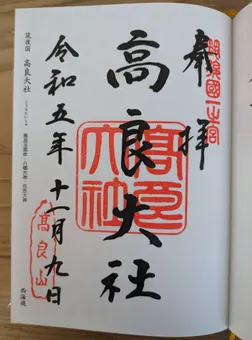 奉拝
高良大社
令和五年十一月九日
高良大社
高良山
筑後国 高良大社
西海道